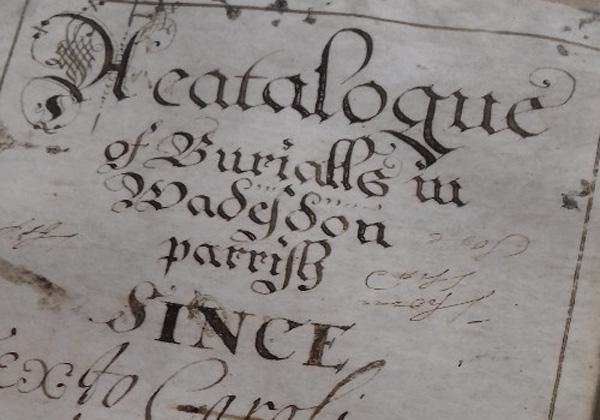 A catalogue
of BuriallS in
Wadesdon
parrish
SINCE
Sexto Caroli